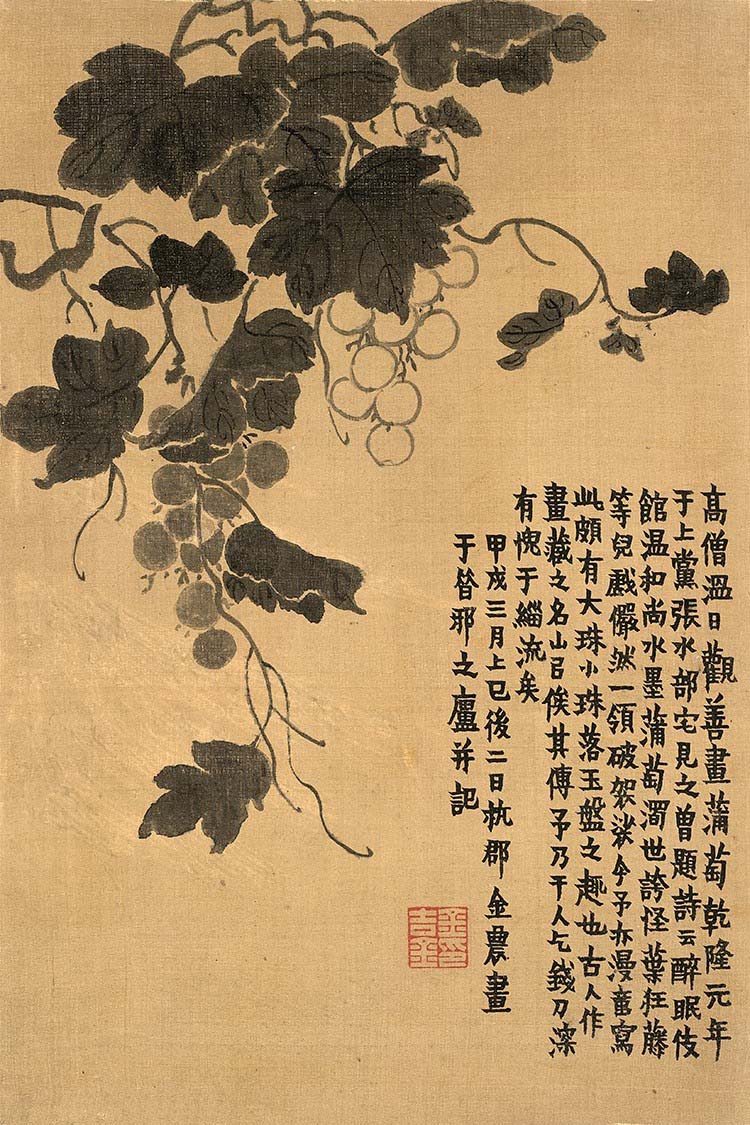 高僧溫日觀善畫蒲萄乾隆元年
于上黨張水部宅見之曾題詩云醉眠伎
館温和尚水墨蒲萄濁世誇怪葉狂藤
等兒戲儼然一領破袈裟今予亦漫童寫
此頗有大珠小珠落玉盤之趣也古人作
畫藏之名山㠯俟其傳予乃干人乞錢刀深
有愧于緇流矣
甲戌三月上巳後二日杭郡金農畫
于昝邪之廬并記